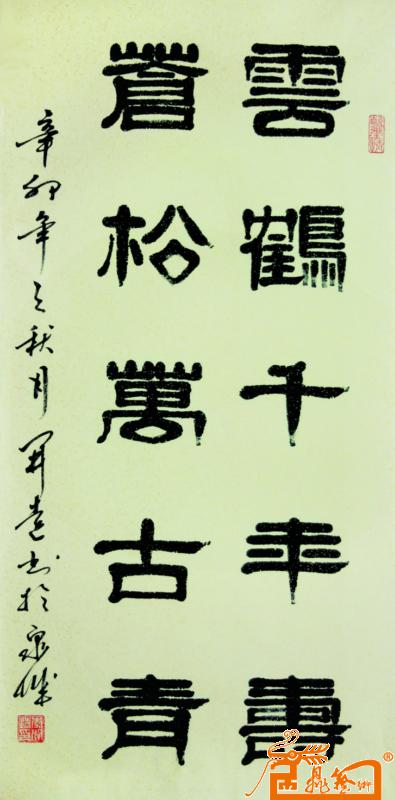 雲鶴千年壽
蒼松萬古青
辛卯年之秋月開貴書於泉城